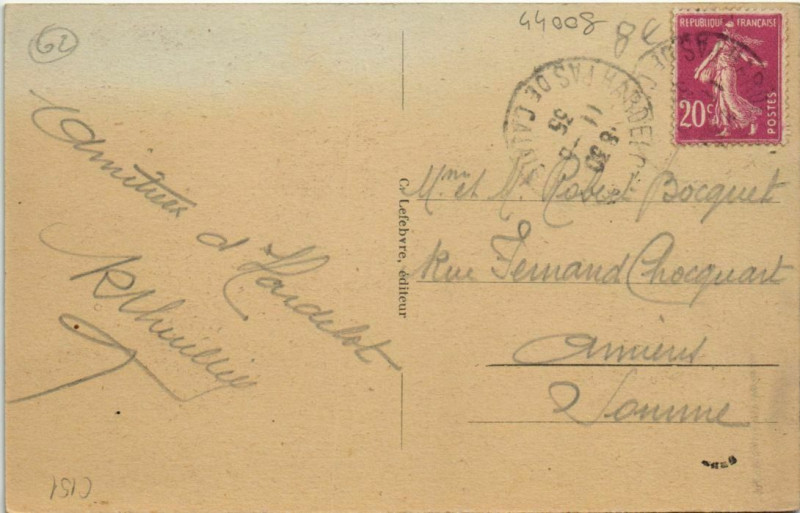 62
44008
REPUBLIQUE FRANÇAISE
20c
POSTES
HARDELOT
PAS DE CALAIS
8 30
11 - 6
35
Amitiés
d'Hardelot
Mme et Mr Robert Bocquet
Rue Fernand Chocquart
Amiens
Somme
C. Lefebvre, éditeur
C151